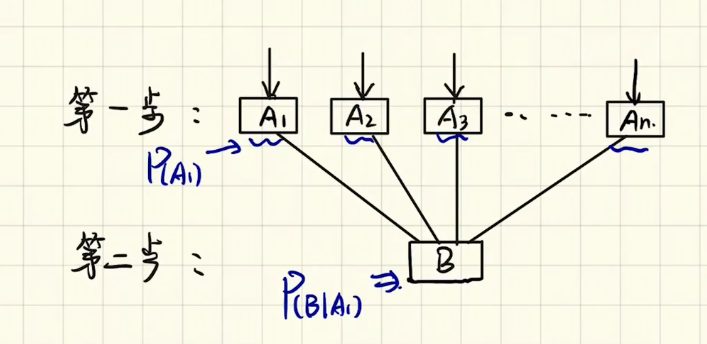 第一步： A₁ A₂ A₃ ‥ … An.
P(A₁)
第二步： B
P(B|A₁)